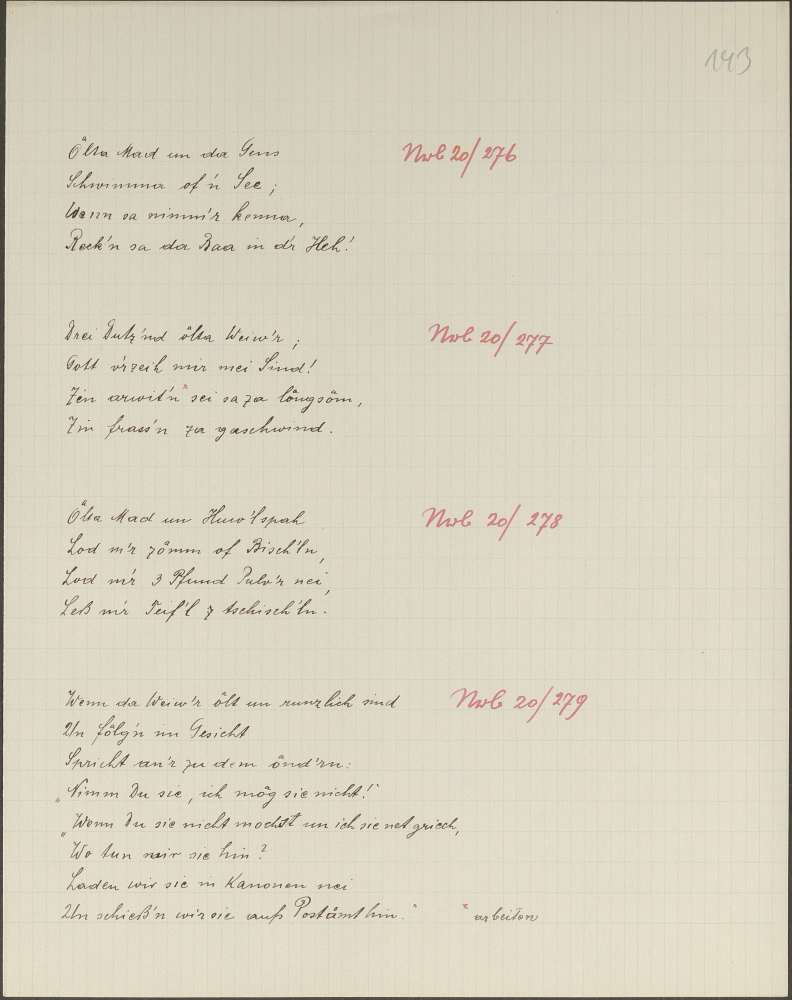 143
Ålta Mad un da Gens
Schwimma of'n See;
Wenn sa nimm'r kenna,
Reck'n sa da Baa in d'r Heh!
Nrb 20/276
Drei Dutz'nd ålta Weiw'r;
Gott v'rzeih mir mei Sind!
Zen arwit'n* sei sa za långsåm,
Zin frass'n za gaschwind.
Nrb 20/277
Ålta Mad un Huw'lspah
Lod m'r zåmm of Bisch'ln,
Lod m'r 3 Pfund Pulv'r nei,
Leß m'r Teif'l z tschisch'ln.
Nrb 20/278
Wenn da Weiw'r ålt un runzlich sind
Un fålg'n im Gesicht
Spricht an'r zu dem ånd'rn:
„Nimm Du sie, ich måg sie nicht!"
„Wenn Du sie nicht mochst un ich sie net griech,
Wo tun wir sie hin?
Laden wir sie in Kanonen nei
Un schieß'n wir sie aufs Poståmt hin."
* arbeiten
Nrb 20/279